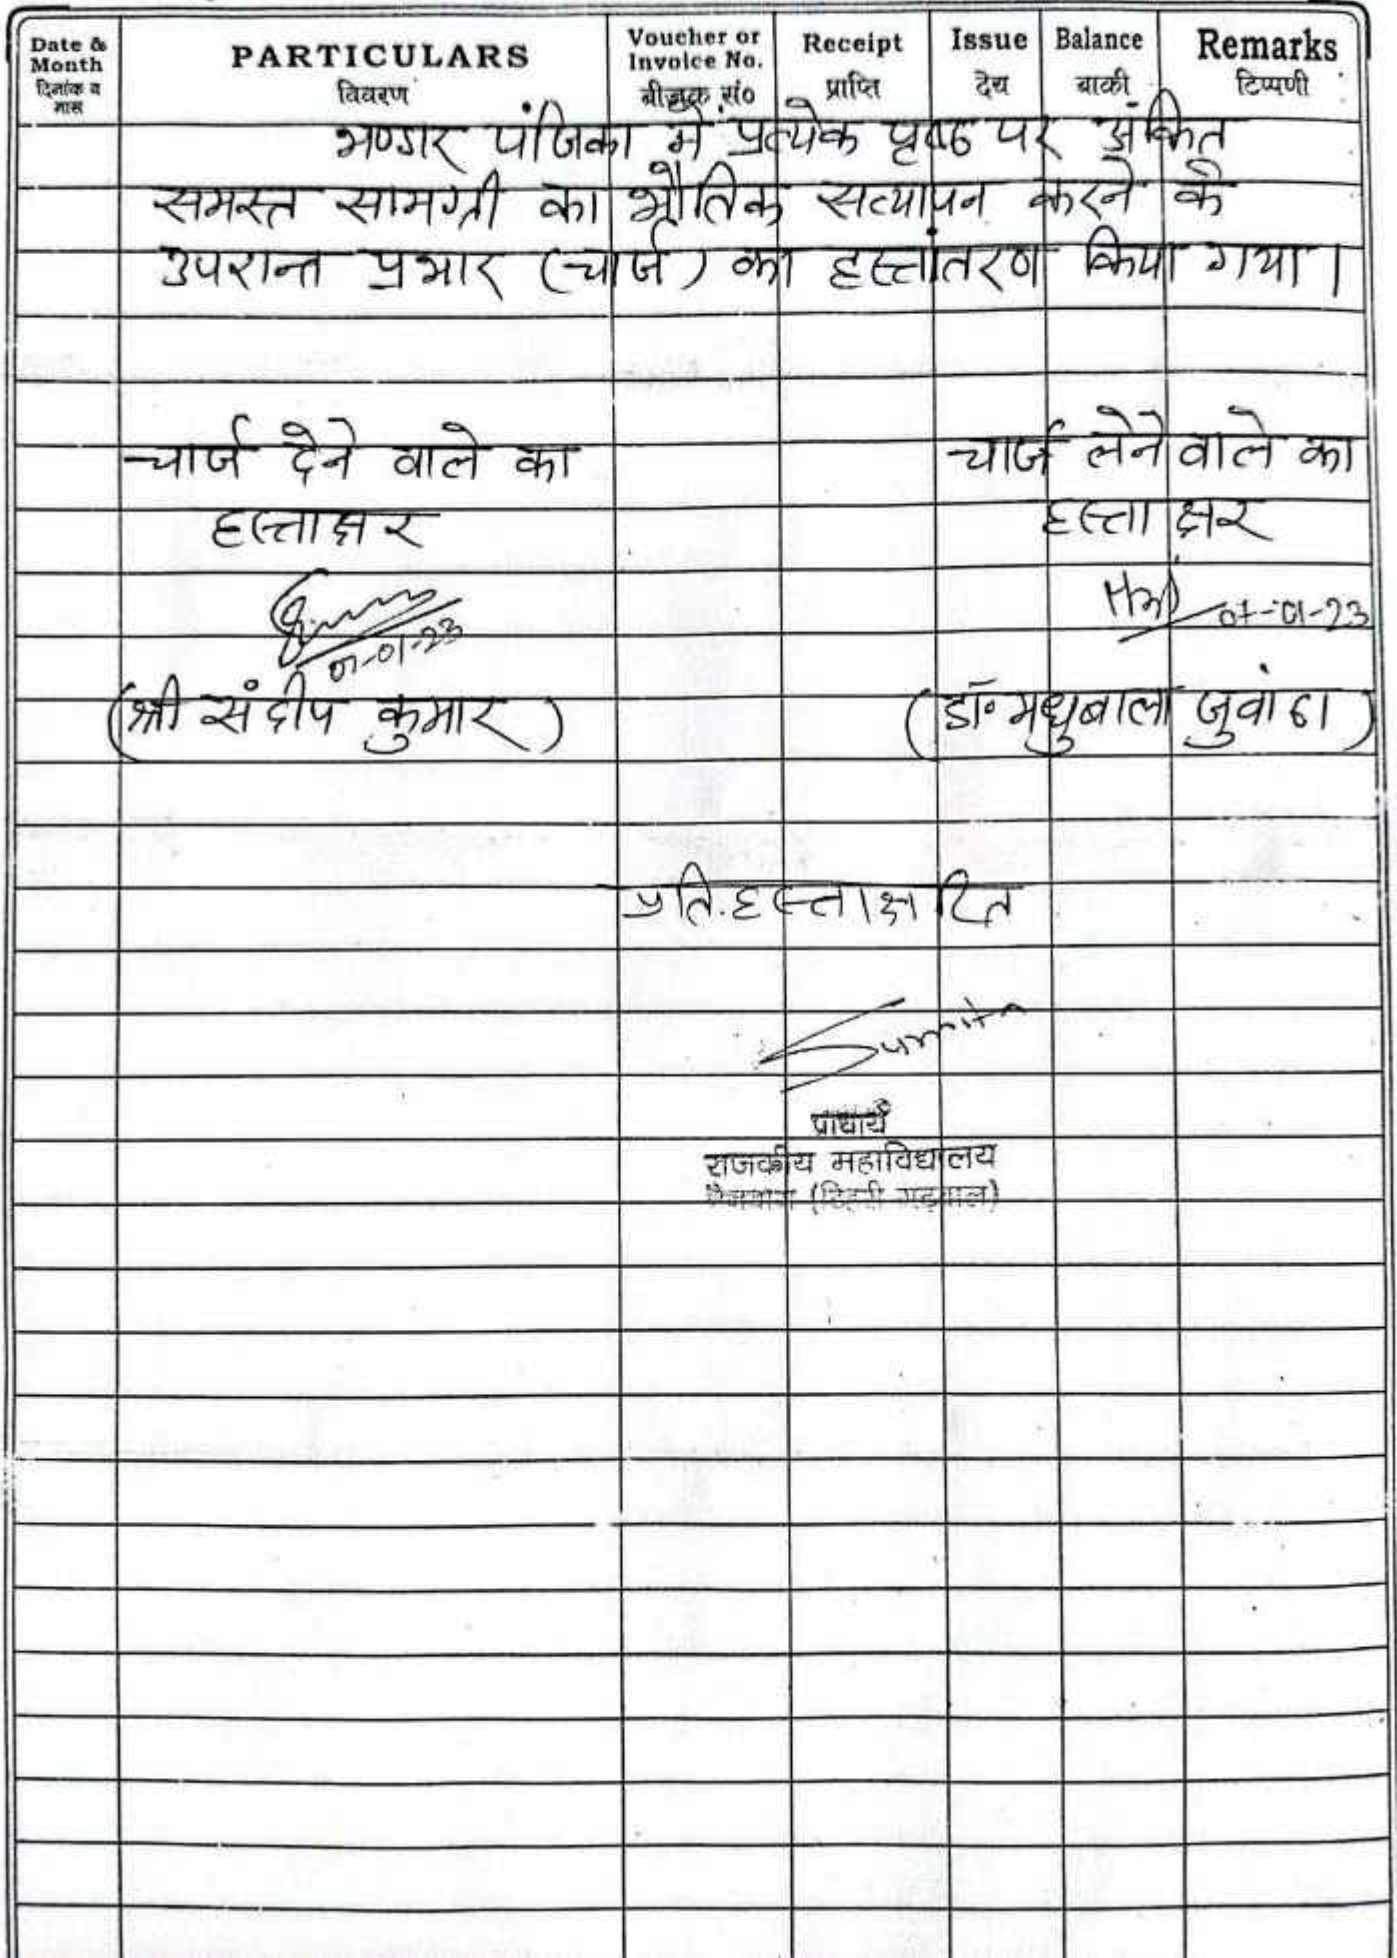 Date & Month
दिनांक व मास
PARTICULARS
विवरण
Voucher or Invoice No.
बीजक सं०
Receipt
प्राप्ति
Issue
देय
Balance
बाकी
Remarks
टिप्पणी
भण्डार पंजिका में प्रत्येक पृष्ठ पर अंकित
समस्त सामग्री का भौतिक सत्यापन करने के
उपरान्त प्रभार (चार्ज) का हस्तांतरण किया गया।
चार्ज देने वाले का
हस्ताक्षर
चार्ज लेने वाले का
हस्ताक्षर
07-01-23
07-01-23
(श्री संदीप कुमार)
(डॉ० मधुबाला जुवांठा)
प्रति.हस्ताक्षरित
Sumita
प्राचार्य
राजकीय महाविद्यालय
(टिहरी गढ़वाल)